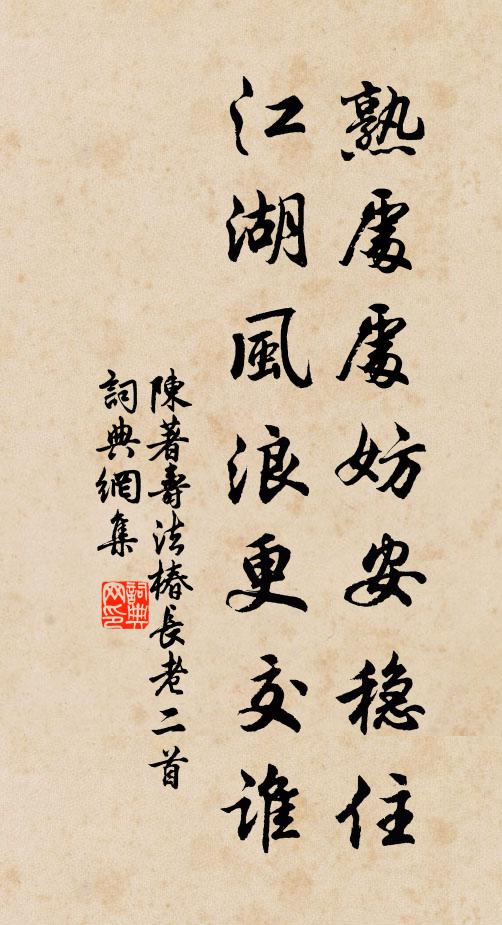 熟處處妨安穩住
江湖風浪更交誰
陳著壽法椿長老二首
詞典網集
詞典网印